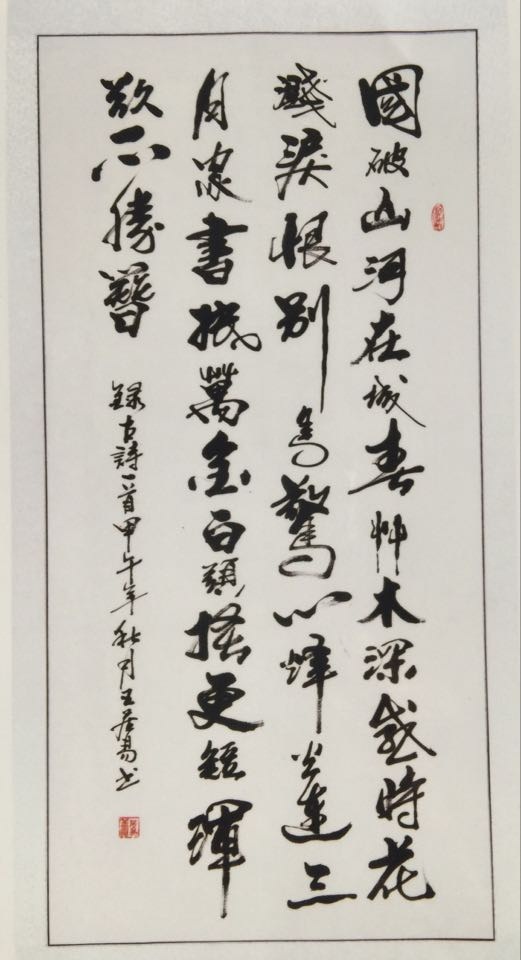 國破山河在城春艸木深感時花
濺淚恨別鳥驚心烽火連三
月家書抵萬金白頭搔更短渾
欲不勝簪
錄古詩一首甲午年秋月王居易書